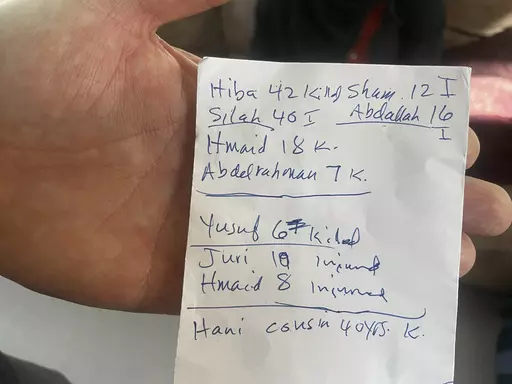 Hiba 42 Killed Sham. 12 I
Silah 40 I Abdallah 16
I
Hmaid 18 K.
Abdelrahman 7 K.
Yusuf 6 Killed
Juri injured
Hmaid 8 injured
Hani cousin 40yrs. K.